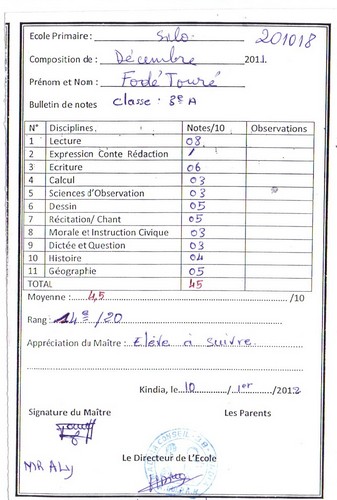 Ecole Primaire : Silo 201018
Composition de : Décembre 2011.
Prénom et Nom : Fodé Touré
Bulletin de notes classe : 3e A
N° Disciplines. Notes/10 Observations
1 Lecture 08
2 Expression Conte Rédaction /
3 Ecriture 06
4 Calcul 03
5 Sciences d'Observation 03
6 Dessin 05
7 Récitation/ Chant 05
8 Morale et Instruction Civique 03
9 Dictée et Question 03
10 Histoire 04
11 Géographie 05
TOTAL 45
Moyenne : 4,5 /10
Rang : 14e /20
Appréciation du Maître : Elève à suivre.
Kindia, le 10 / 1er /2012
Signature du Maître Les Parents
Le Directeur de L'Ecole
MR ALY